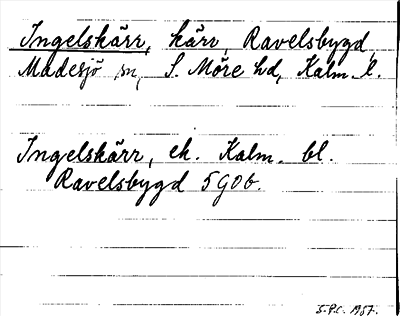 Ingelskärr, kärr, Ravelsbygd,
Madesjö sn, S. Möre hd, Kalm. l.
Ingelskärr, ek. Kalm. bl.
Ravelsbygd 5G0b.
S.P.C. 1957.